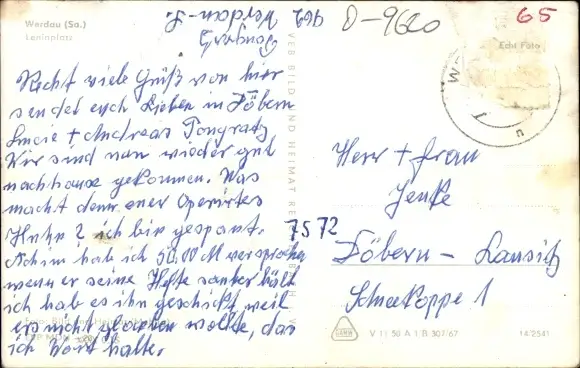 Werdau (Sa.)
Leninplatz
962 Werdau
Pongratz
D-9620
65
Echt Foto
Recht viele Grüß von hier
sendet euch Lieben in Döbern
Lucie + Andreas Pongratz
Wir sind nun wieder gut
nachhause gekommen. Was
macht denn euer Operirtes
Huhn? ich bin gespant.
Achim hab ich 50,00 M versprochen
wenn er seine Hefte sauber hält
ich hab es ihn geschickt weil
er's nicht glauben wollte, das
ich Wort halte.
VEB BILD UND HEIMAT
Herr + Frau
Jenke
7572
Döbern - Lausitz
Schneekoppe 1
V 11 50 A 1 B 307/67
14/2541